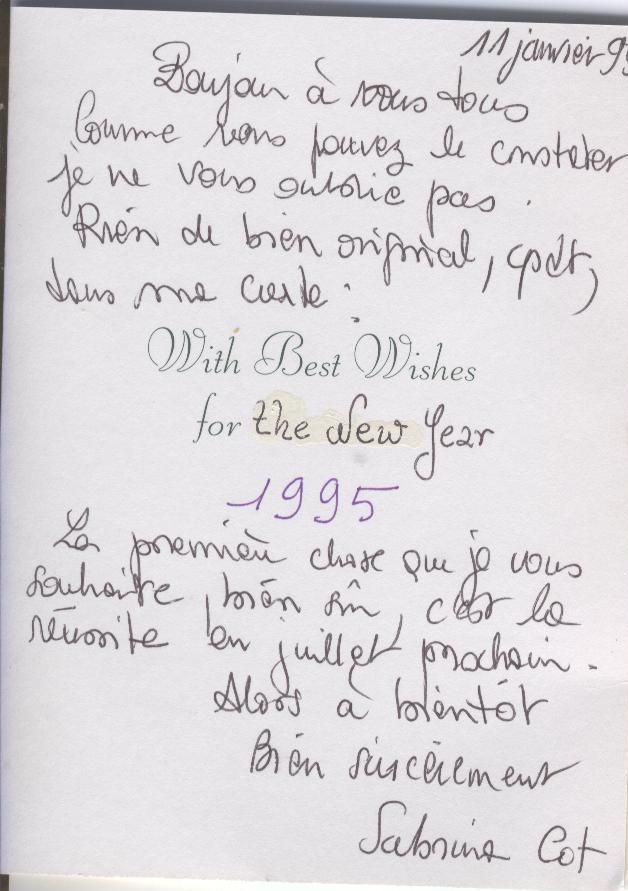 11 janvier 95
Bonjour à vous tous
Comme vous pouvez le constater
je ne vous oublie pas.
Rien de bien original, cpdt,
dans ma carte.
With Best Wishes
for the New Year
1995
La première chose que je vous
souhaite, bien sûr, c'est la
réussite en juillet prochain.
Alors à bientôt
Bien sincèrement
Sabrina Cot